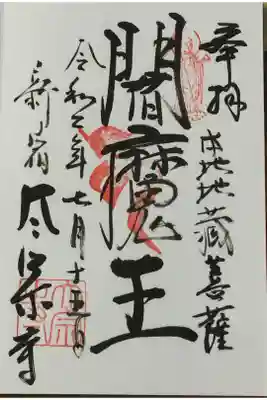 奉拝
本地地蔵菩薩
閻魔王
令和二年七月十五日
新宿 太宗寺